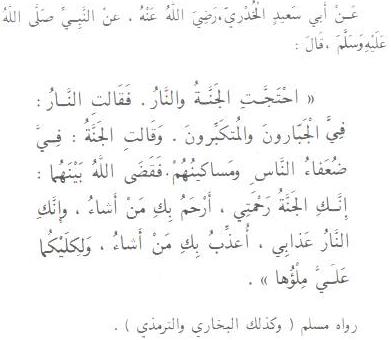 عَـنْ أَبي سَعيدٍ الْخُدْرِيِّ،رَضِيَ اللهُ عَنْهُ ، عَنْ النَّبِيِّ صَلَّى اللهُ
عَلَيْهِ وَسَلَّمَ ، قَالَ :
« احْتَجَّتِ الجَنَّةُ والنَّارُ . فَقَالَتِ النَّارُ :
فِيَّ الْجَبَّارونَ والْمُتكَبِّرونَ . وَقَالتِ الجَنَّةُ : فِيَّ
ضُعَفاءُ النَّاسِ ومَساكينُهُمْ . فَقَضَى اللهُ بَيْنَهُما :
إِنَّكِ الجَنَّةُ رَحْمَتِي ، أَرْحَمُ بِكِ مَنْ أَشاءُ ، وإِنَّكِ
النَّارُ عَذَابِي ، أُعَذِّبُ بِكِ مَنْ أَشاءُ ، وَلِكِلَيْكُما
عَلَيَّ مِلْؤُها » .
رواه مسلم ( وكذلك البخاري والترمذي ) .